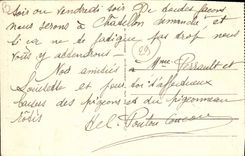 soir ou vendredi soir De toutes façons
nous serons à Chatillon dimanche et
si ça ne te fatigue pas trop nous
vous y attendrons
Nos amitiés à Mme Perrault et
Loulotte et pour toi d'affectueux
baisers des pigeons et du pigeonneau